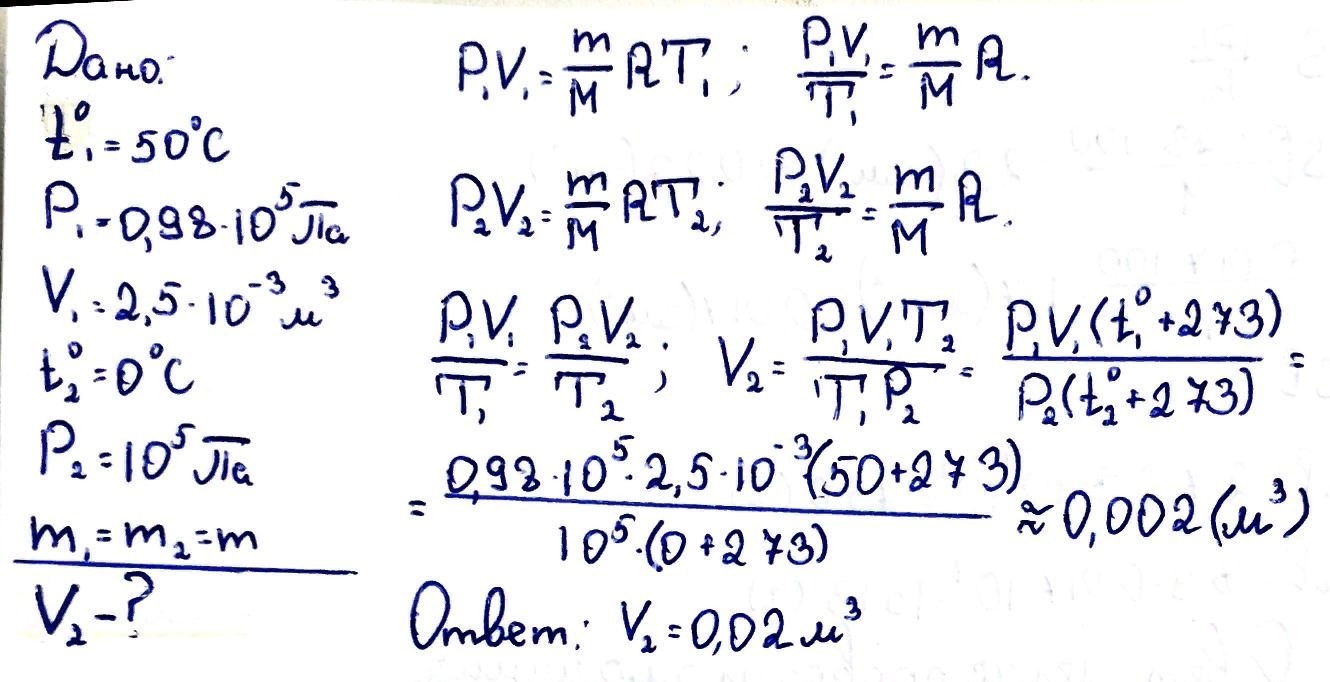 Дано:
t₁° = 50°C
P₁ = 0,98·10⁵ Па
V₁ = 2,5·10⁻³ м³
t₂° = 0°C
P₂ = 10⁵ Па
m₁ = m₂ = m
V₂ - ?
P₁V₁ = m/M RT₁; P₁V₁/T₁ = m/M R.
P₂V₂ = m/M RT₂; P₂V₂/T₂ = m/M R.
P₁V₁/T₁ = P₂V₂/T₂; V₂ = P₁V₁T₂/T₁P₂ = P₁V₁(t₁° + 273)/P₂(t₂° + 273) =
= 0,98·10⁵·2,5·10⁻³(50 + 273)/10⁵·(0 + 273) ≈ 0,002 (м³)
Ответ: V₂ = 0,02 м³